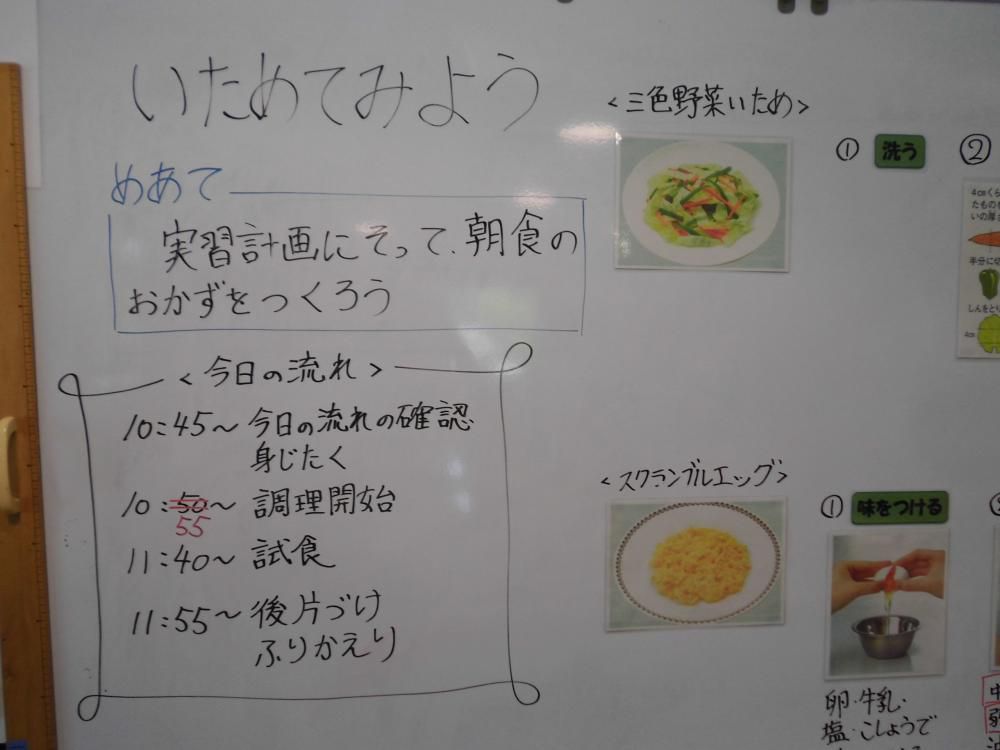 いためてみよう
めあて
実習計画にそって、朝食の
おかずをつくろう
<今日の流れ>
10:45~ 今日の流れの確認
身じたく
10:50~ 調理開始
55
11:40~ 試食
11:55~ 後片づけ
ふりかえり
<三色野菜いため>
① 洗う ②
4cmくら
たものを
いの厚
半分に切
しんをと
4cm
<スクランブルエッグ>
① 味をつける
卵・牛乳・
塩・こしょうで